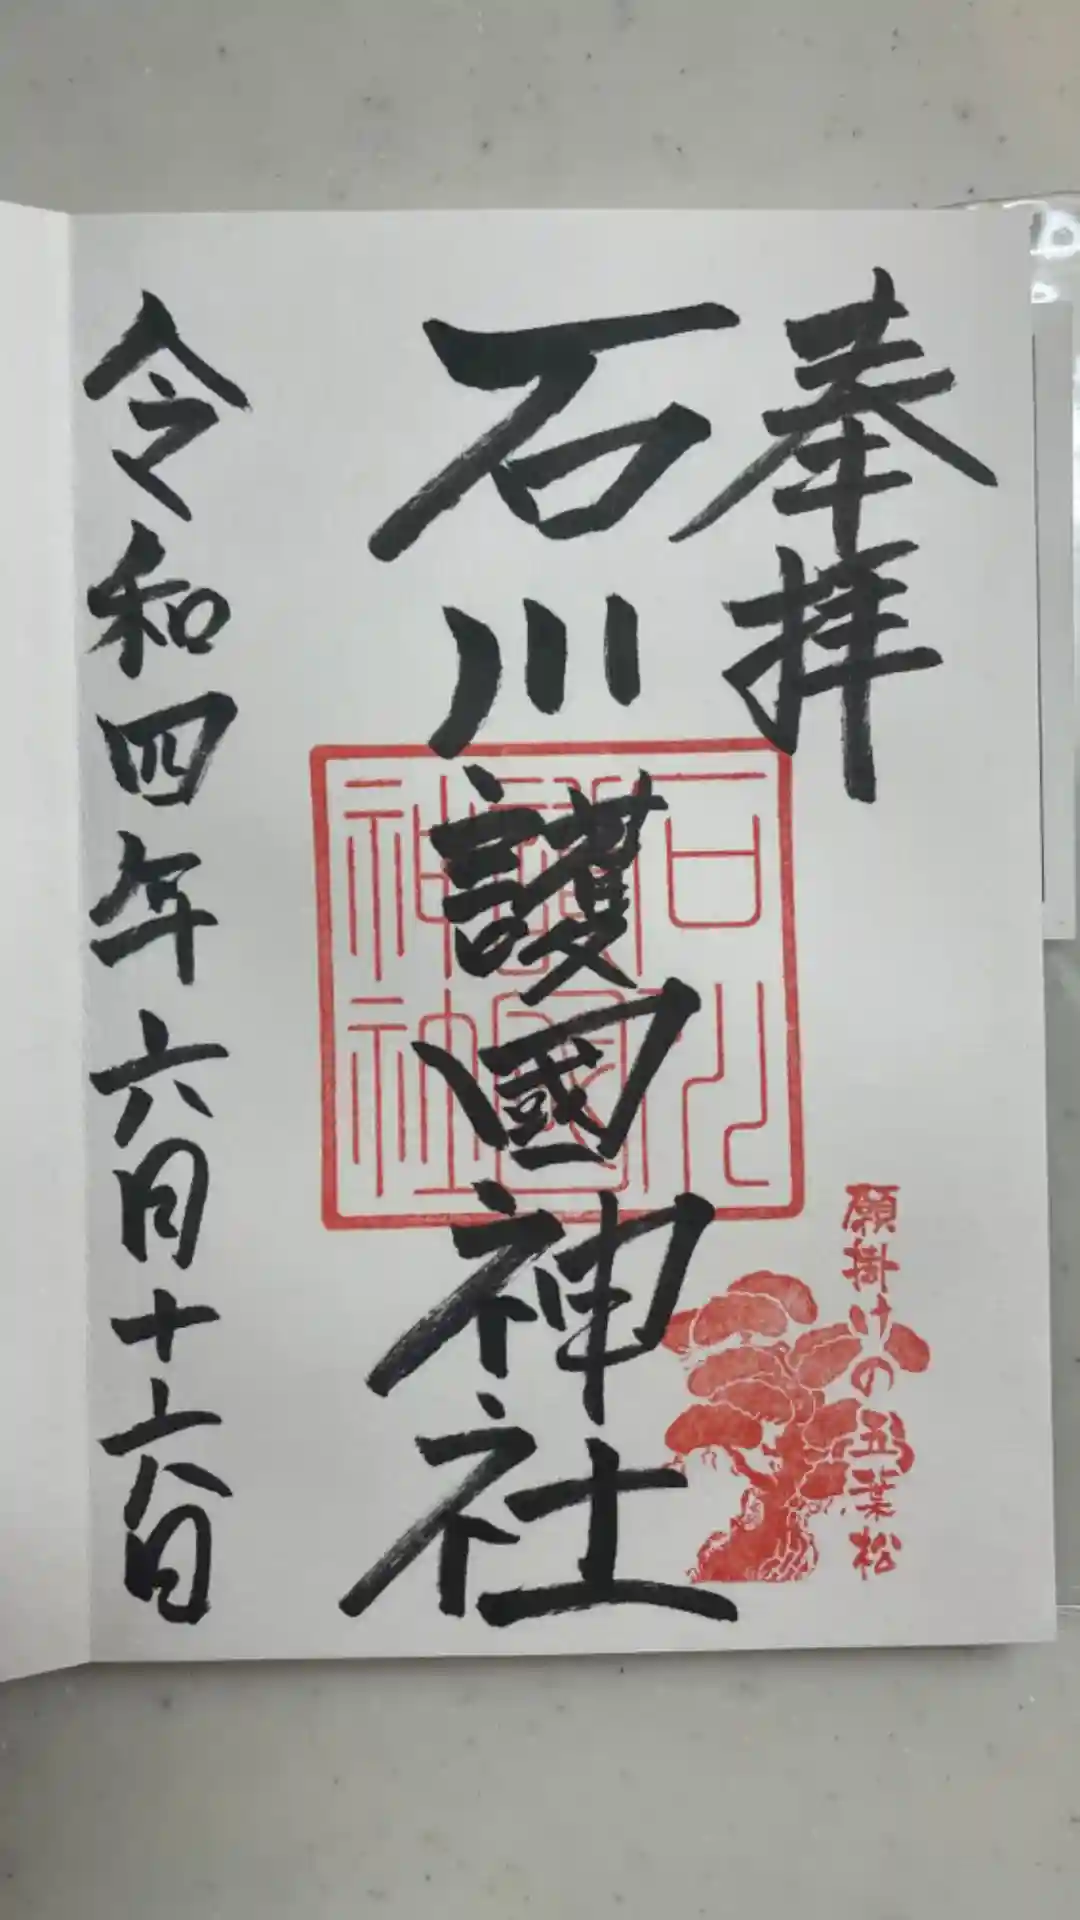 奉拝
石川護國神社
石川護國神社
願掛けの五葉松
令和四年六月十六日